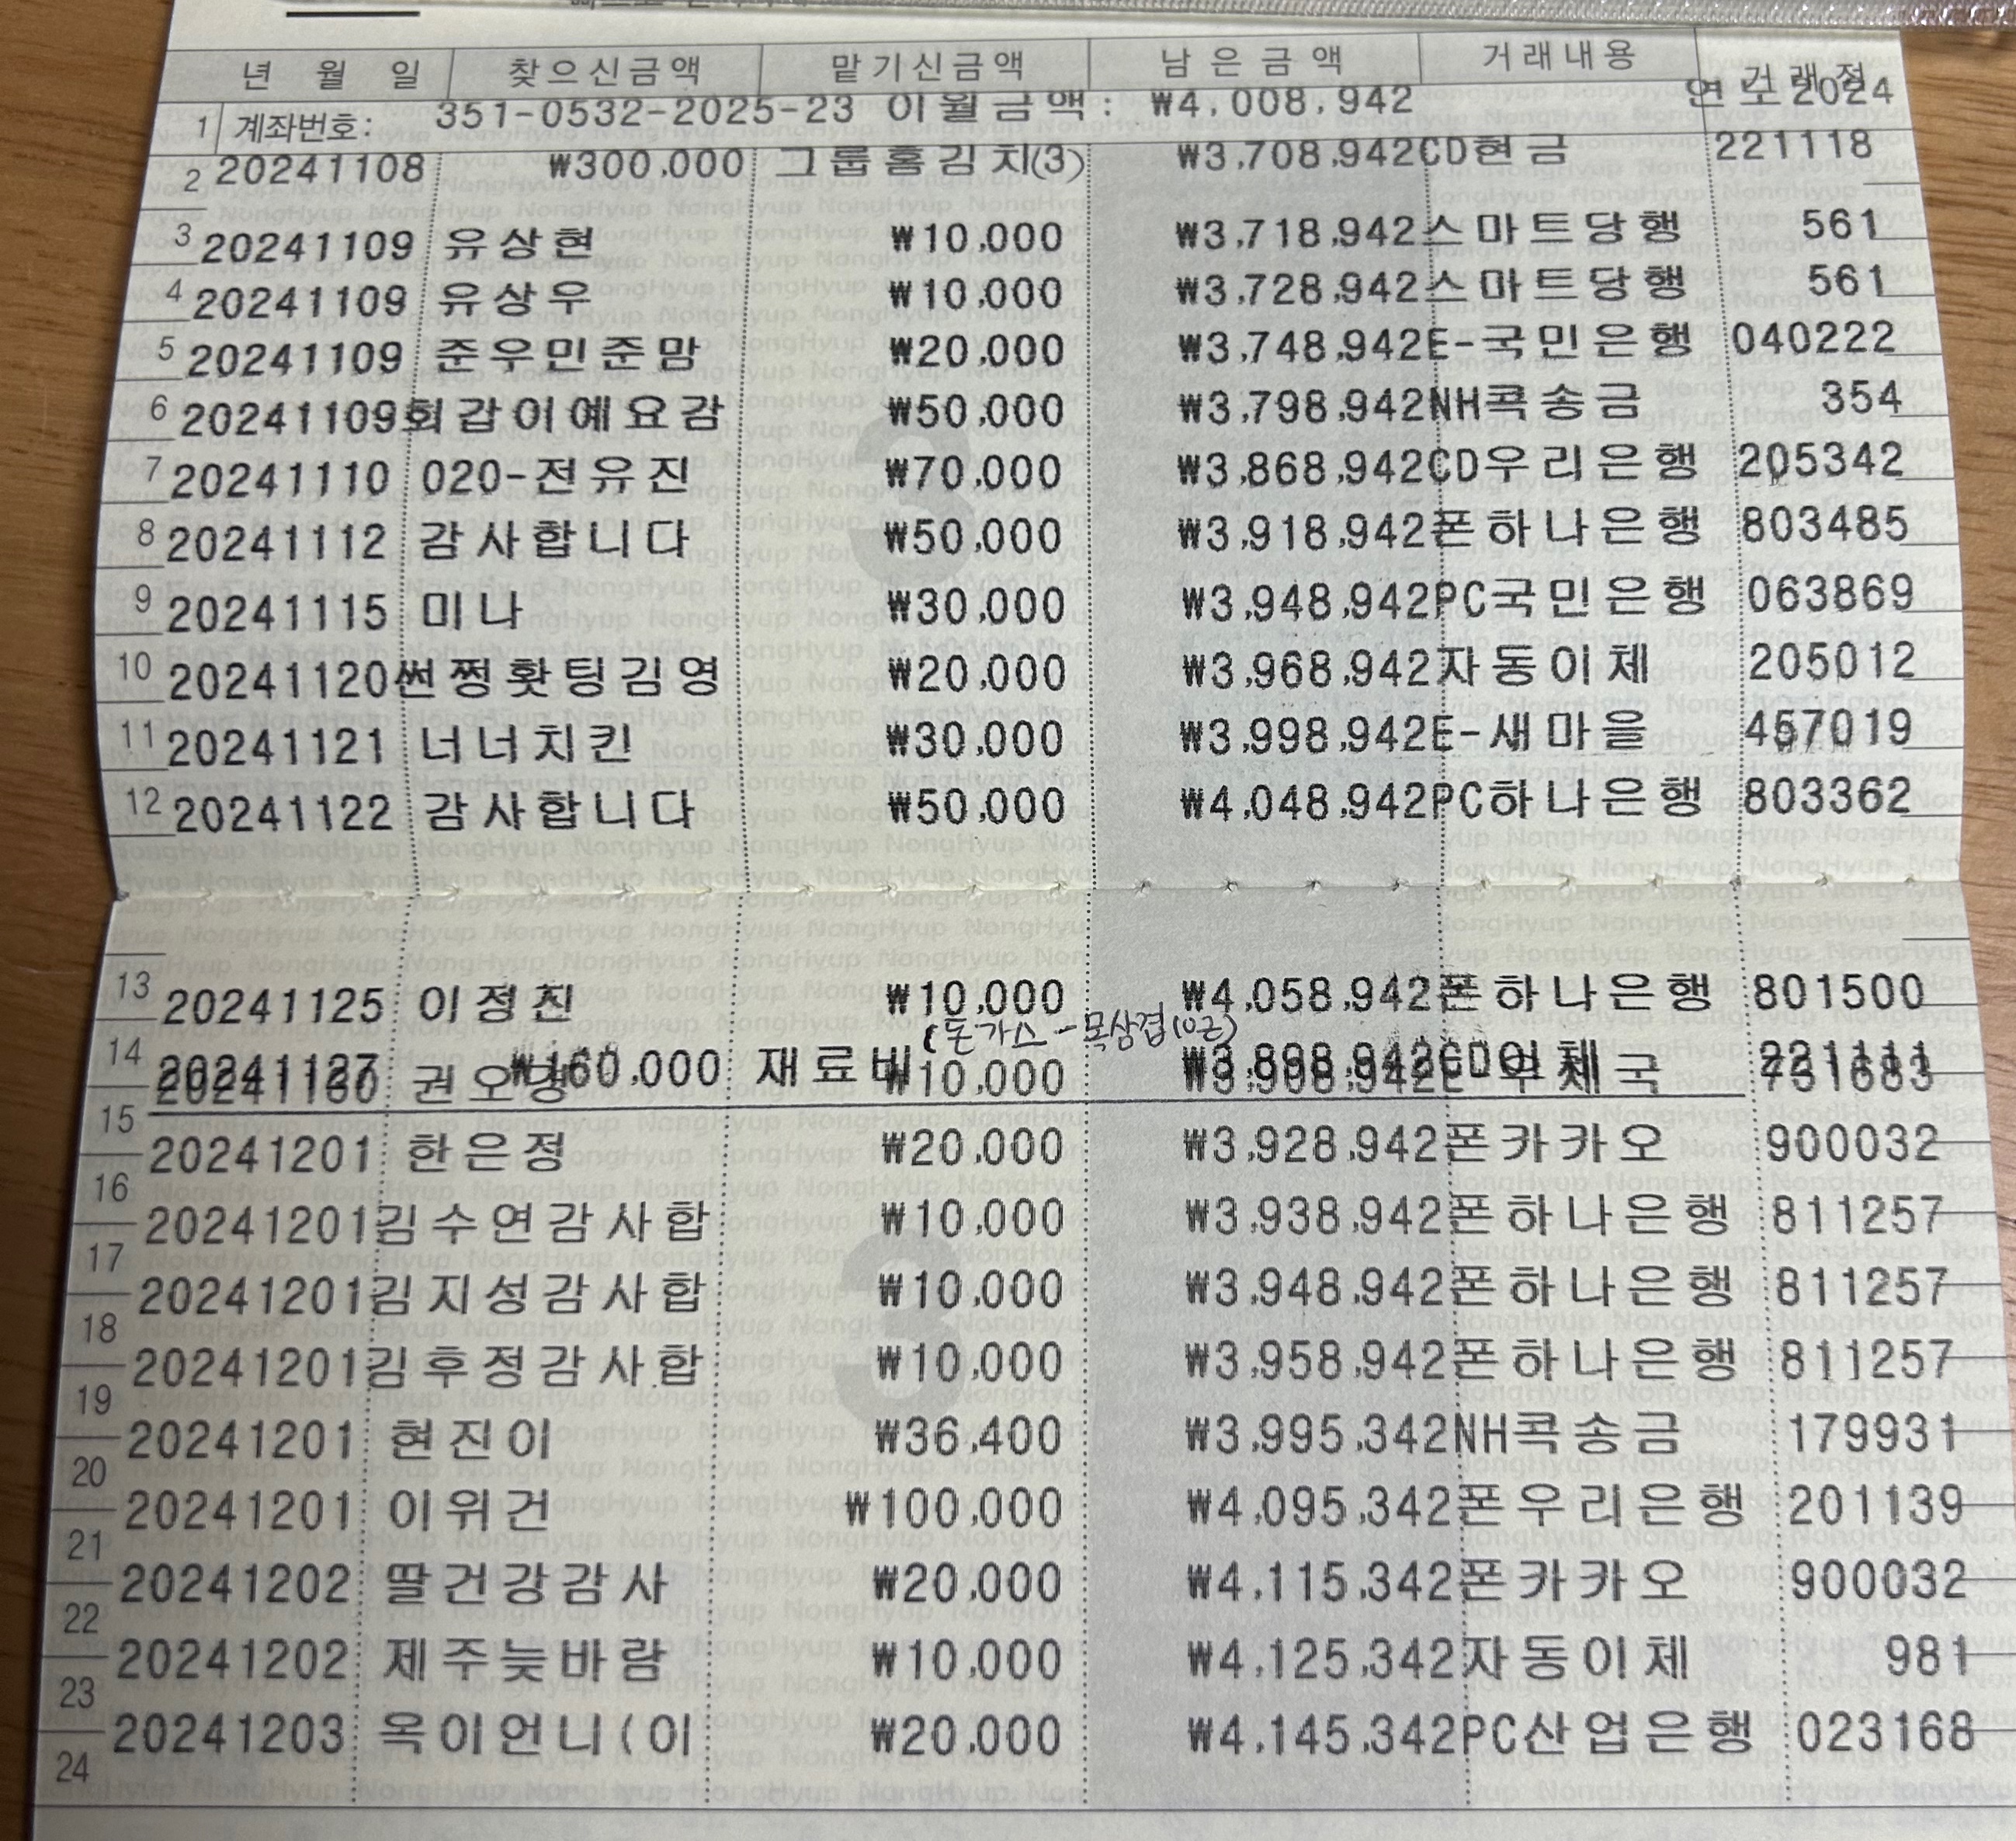 년 월 일 찾으신금액 맡기신금액 남은금액 거래내용 거래점
1 계좌번호: 351-0532-2025-23 이월금액: ₩4,008,942 연소2024
2 20241108 ₩300,000 그룹홈김치(3) ₩3,708,942 CD현금 221118
3 20241109 유상현 ₩10,000 ₩3,718,942 스마트당행 561
4 20241109 유상우 ₩10,000 ₩3,728,942 스마트당행 561
5 20241109 준우민준맘 ₩20,000 ₩3,748,942 E-국민은행 040222
6 20241109 회갑이예요감 ₩50,000 ₩3,798,942 NH콕송금 354
7 20241110 020-전유진 ₩70,000 ₩3,868,942 CD우리은행 205342
8 20241112 감사합니다 ₩50,000 ₩3,918,942 폰하나은행 803485
9 20241115 미나 ₩30,000 ₩3,948,942 PC국민은행 063869
10 20241120 썬쩡홧팅김영 ₩20,000 ₩3,968,942 자동이체 205012
11 20241121 너너치킨 ₩30,000 ₩3,998,942 E-새마을 457019
12 20241122 감사합니다 ₩50,000 ₩4,048,942 PC하나은행 803362
13 20241125 이정진 ₩10,000 ₩4,058,942 폰하나은행 801500
(돈가스-목삼겹
14 20241127 ₩160,000 재료비 ₩3,898,942
권오 ₩10,000
15 20241201 한은정 ₩20,000 ₩3,928,942 폰카카오 900032
16 20241201 김수연감사합 ₩10,000 ₩3,938,942 폰하나은행 811257
17 20241201 김지성감사합 ₩10,000 ₩3,948,942 폰하나은행 811257
18 20241201 김후정감사합 ₩10,000 ₩3,958,942 폰하나은행 811257
19 20241201 현진이 ₩36,400 ₩3,995,342 NH콕송금 179931
20 20241201 이위건 ₩100,000 ₩4,095,342 폰우리은행 201139
21 20241202 딸건강감사 ₩20,000 ₩4,115,342 폰카카오 900032
22 20241202 제주늦바람 ₩10,000 ₩4,125,342 자동이체 981
23 20241203 옥이언니(이 ₩20,000 ₩4,145,342 PC산업은행 023168
24